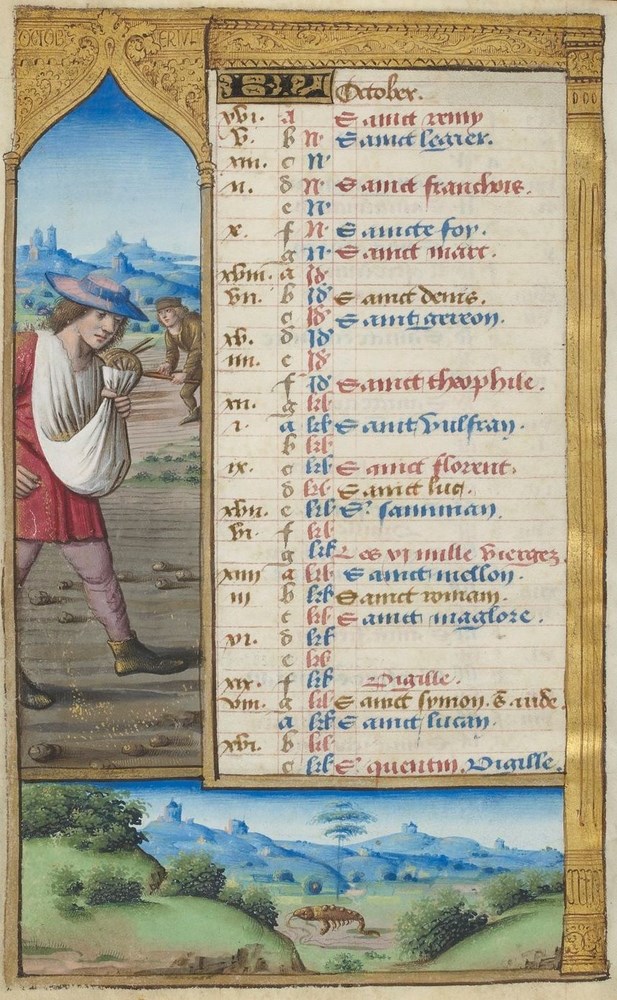 OCTOB ERIVE
October.
xvi. a Sainct remy
v. b N. Sainct legier.
xiii. c N.
ii. d N. Sainct franchois.
e N.
x. f N. Saincte foy.
g N. Sainct marc.
xviii. a Id
vii. b Id Sainct denis.
c Id Sainct gereon.
xv. d Id
iiii. e Id
f Id Sainct theophile.
xii. g kl
i. a kl Sainct Vulfran.
b kl
ix. c kl Sainct florent.
d kl Sainct luc.
xvii. e kl St.
vi. f kl
g kl Les xi mille vierges.
xiiii a kl Sainct mellon.
iii b kl Sainct romain.
c kl Sainct maglore.
xi. d kl
e kl
xix. f kl Vigille.
viii. g kl Sainct symon. & iude.
a kl Sainct lucan.
xvi. b kl
c kl St. quentin. Vigille.